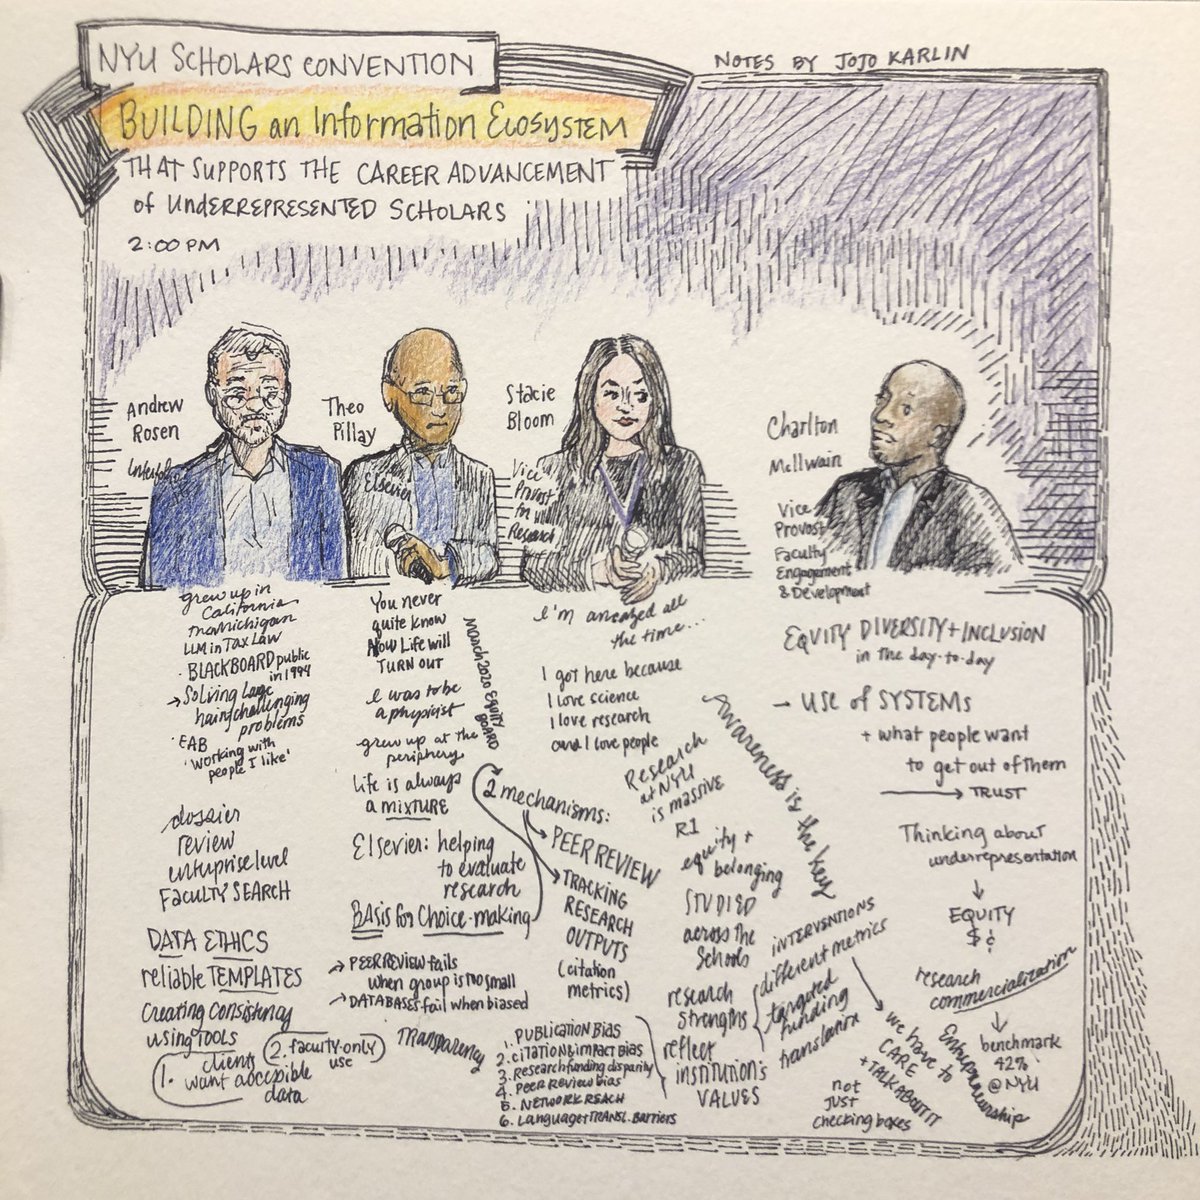 NYU SCHOLARS CONVENTION
BUILDING an Information ECOSYSTEM
THAT SUPPORTS THE CAREER ADVANCEMENT
of UNDERREPRESENTED SCHOLARS
2:00 PM
NOTES BY JOJO KARLIN
Andrew
Rosen
grew up in
California
Michigan
LLM in Tax Law
· BLACKBOARD public
in 1994
→ Solving Large
challenging
problems
· EAB
'working with
people I like'
dossier
review
enterprise level
FACULTY SEARCH
DATA ETHICS
reliable TEMPLATES
Creating consistency
using TOOLS
1. clients
want accepible
data
2. faculty-only
use
Theo
Pillay
Elsevier
You never
quite know
How Life will
TURN OUT
I was to be
a physicist
grew up at the
periphery
Life is always
a MIXTURE
March 2020 EQUITY
BOARD
Elsevier: helping
to evaluate
research
BASIS for Choice-making
→ PEER REVIEW fails
when group is too small
→ DATABASES fail when biased
Transparency
2 mechanisms:
PEER REVIEW
TRACKING
RESEARCH
OUTPUTS
(citation
metrics)
1. PUBLICATION BIAS
2. CITATION & IMPACT BIAS
3. Research funding disparity
4. PEER REVIEW BIAS
5. NETWORK REACH
6. Language + TRANSL. Barriers
Stacie
Bloom
Vice
Provost
for
Research
I'm amazed all
the time...
I got here because
I love science
I love research
and I love people
Research
at NYU
is massive
R1
equity +
belonging
STUDIED
across the
Schools
research
strengths
reflect
institution's
VALUES
Awareness is the key
INTERVENTIONS
different metrics
targeted
funding
translation
we have to
CARE
+ TALK ABOUT IT
not
JUST
checking boxes
Charlton
McIlwain
Vice
Provost
Faculty
Engagement
& Development
EQUITY DIVERSITY + INCLUSION
in the day-to-day
→ USE of SYSTEMS
+ what people want
to get out of them
→ TRUST
Thinking about
underrepresentation
↓
EQUITY
$ ¢
research
commercialization
↓
benchmark
42%
@NYU
Entrepreneurship